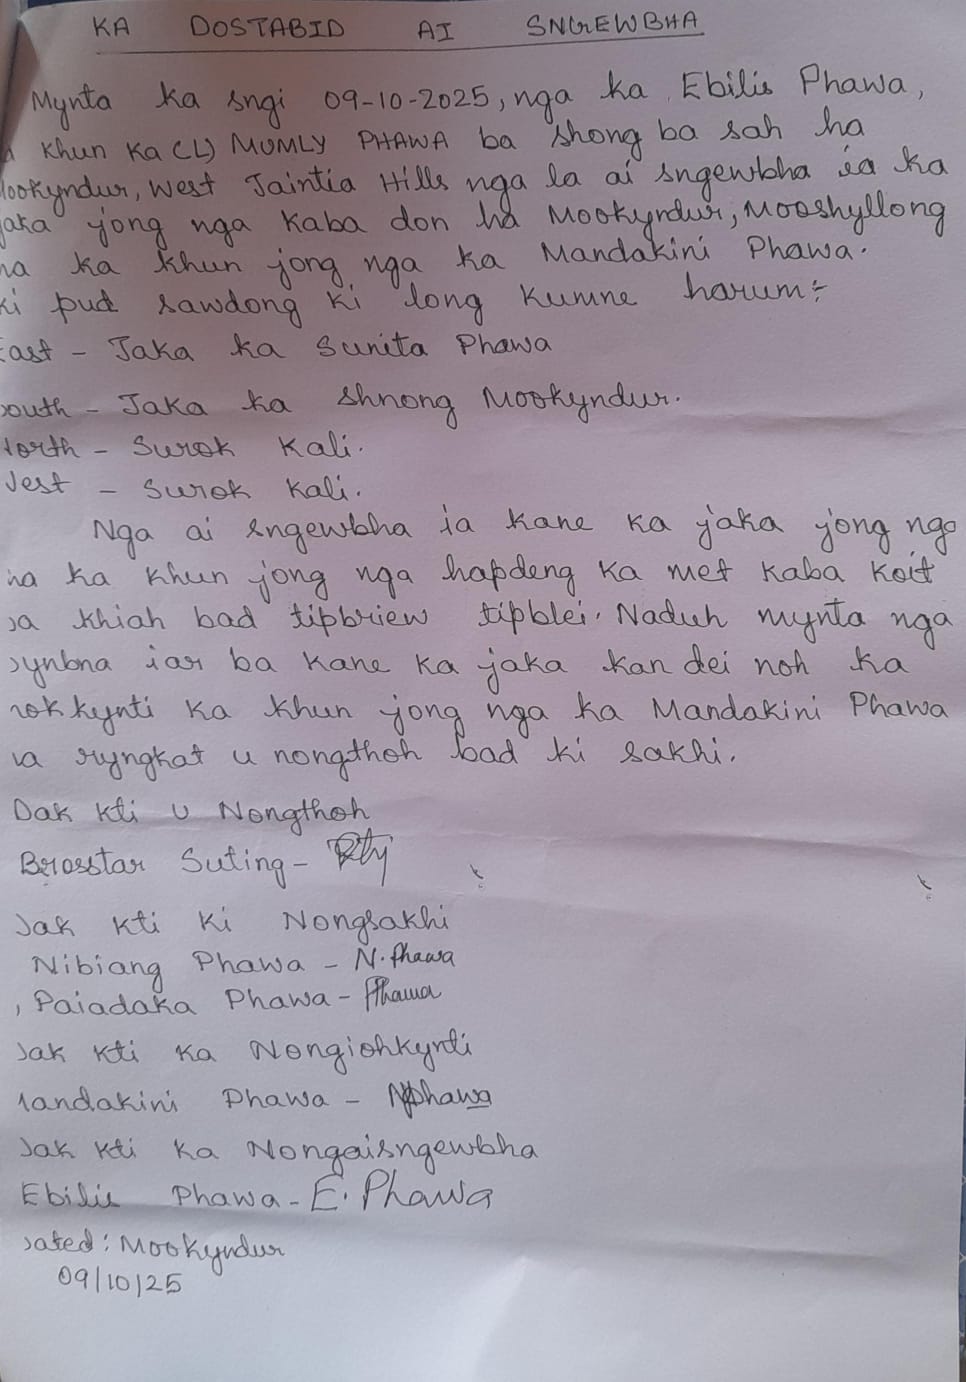 KA DOSTABID AI SNGEWBHA
Mynta ka sngi 09-10-2025, nga ka Ebilis Phawa,
khun ka (L) MUMLY PHAWA ba shong ba sah ha
ookyndur, West Jaintia Hills nga la ai sngewbha ia ka
jaka jong nga kaba don ha Mookyndur, Mooshyllong
ha ka khun jong nga ka Mandakini Phawa.
ki pud sawdong ki long kumne harum:-
East - Jaka ka Sunita Phawa
South - Jaka ka shnong Mookyndur.
North - Surok kali.
West - Surok kali.
Nga ai sngewbha ia kane ka jaka jong nga
ha ka khun jong nga hapdeng ka met kaba koit
ba khiah bad tipbriew tipblei. Naduh mynta nga
pynbna iar ba kane ka jaka kan dei noh ka
hok kynti ka khun jong nga ka Mandakini Phawa
ha ryngkat u nongthoh bad ki sakhi.
Dak kti u Nongthoh
Brosstar Suting -
Dak kti ki Nongsakhi
Nibiang Phawa - N. Phawa
, Paiadaka Phawa - PPhawa
Dak kti ka Nongiohkynti
Mandakini Phawa - MPhawa
Dak kti ka Nongaisngewbha
Ebilis Phawa - E. Phawa
Dated: Mookyndur
09/10/25